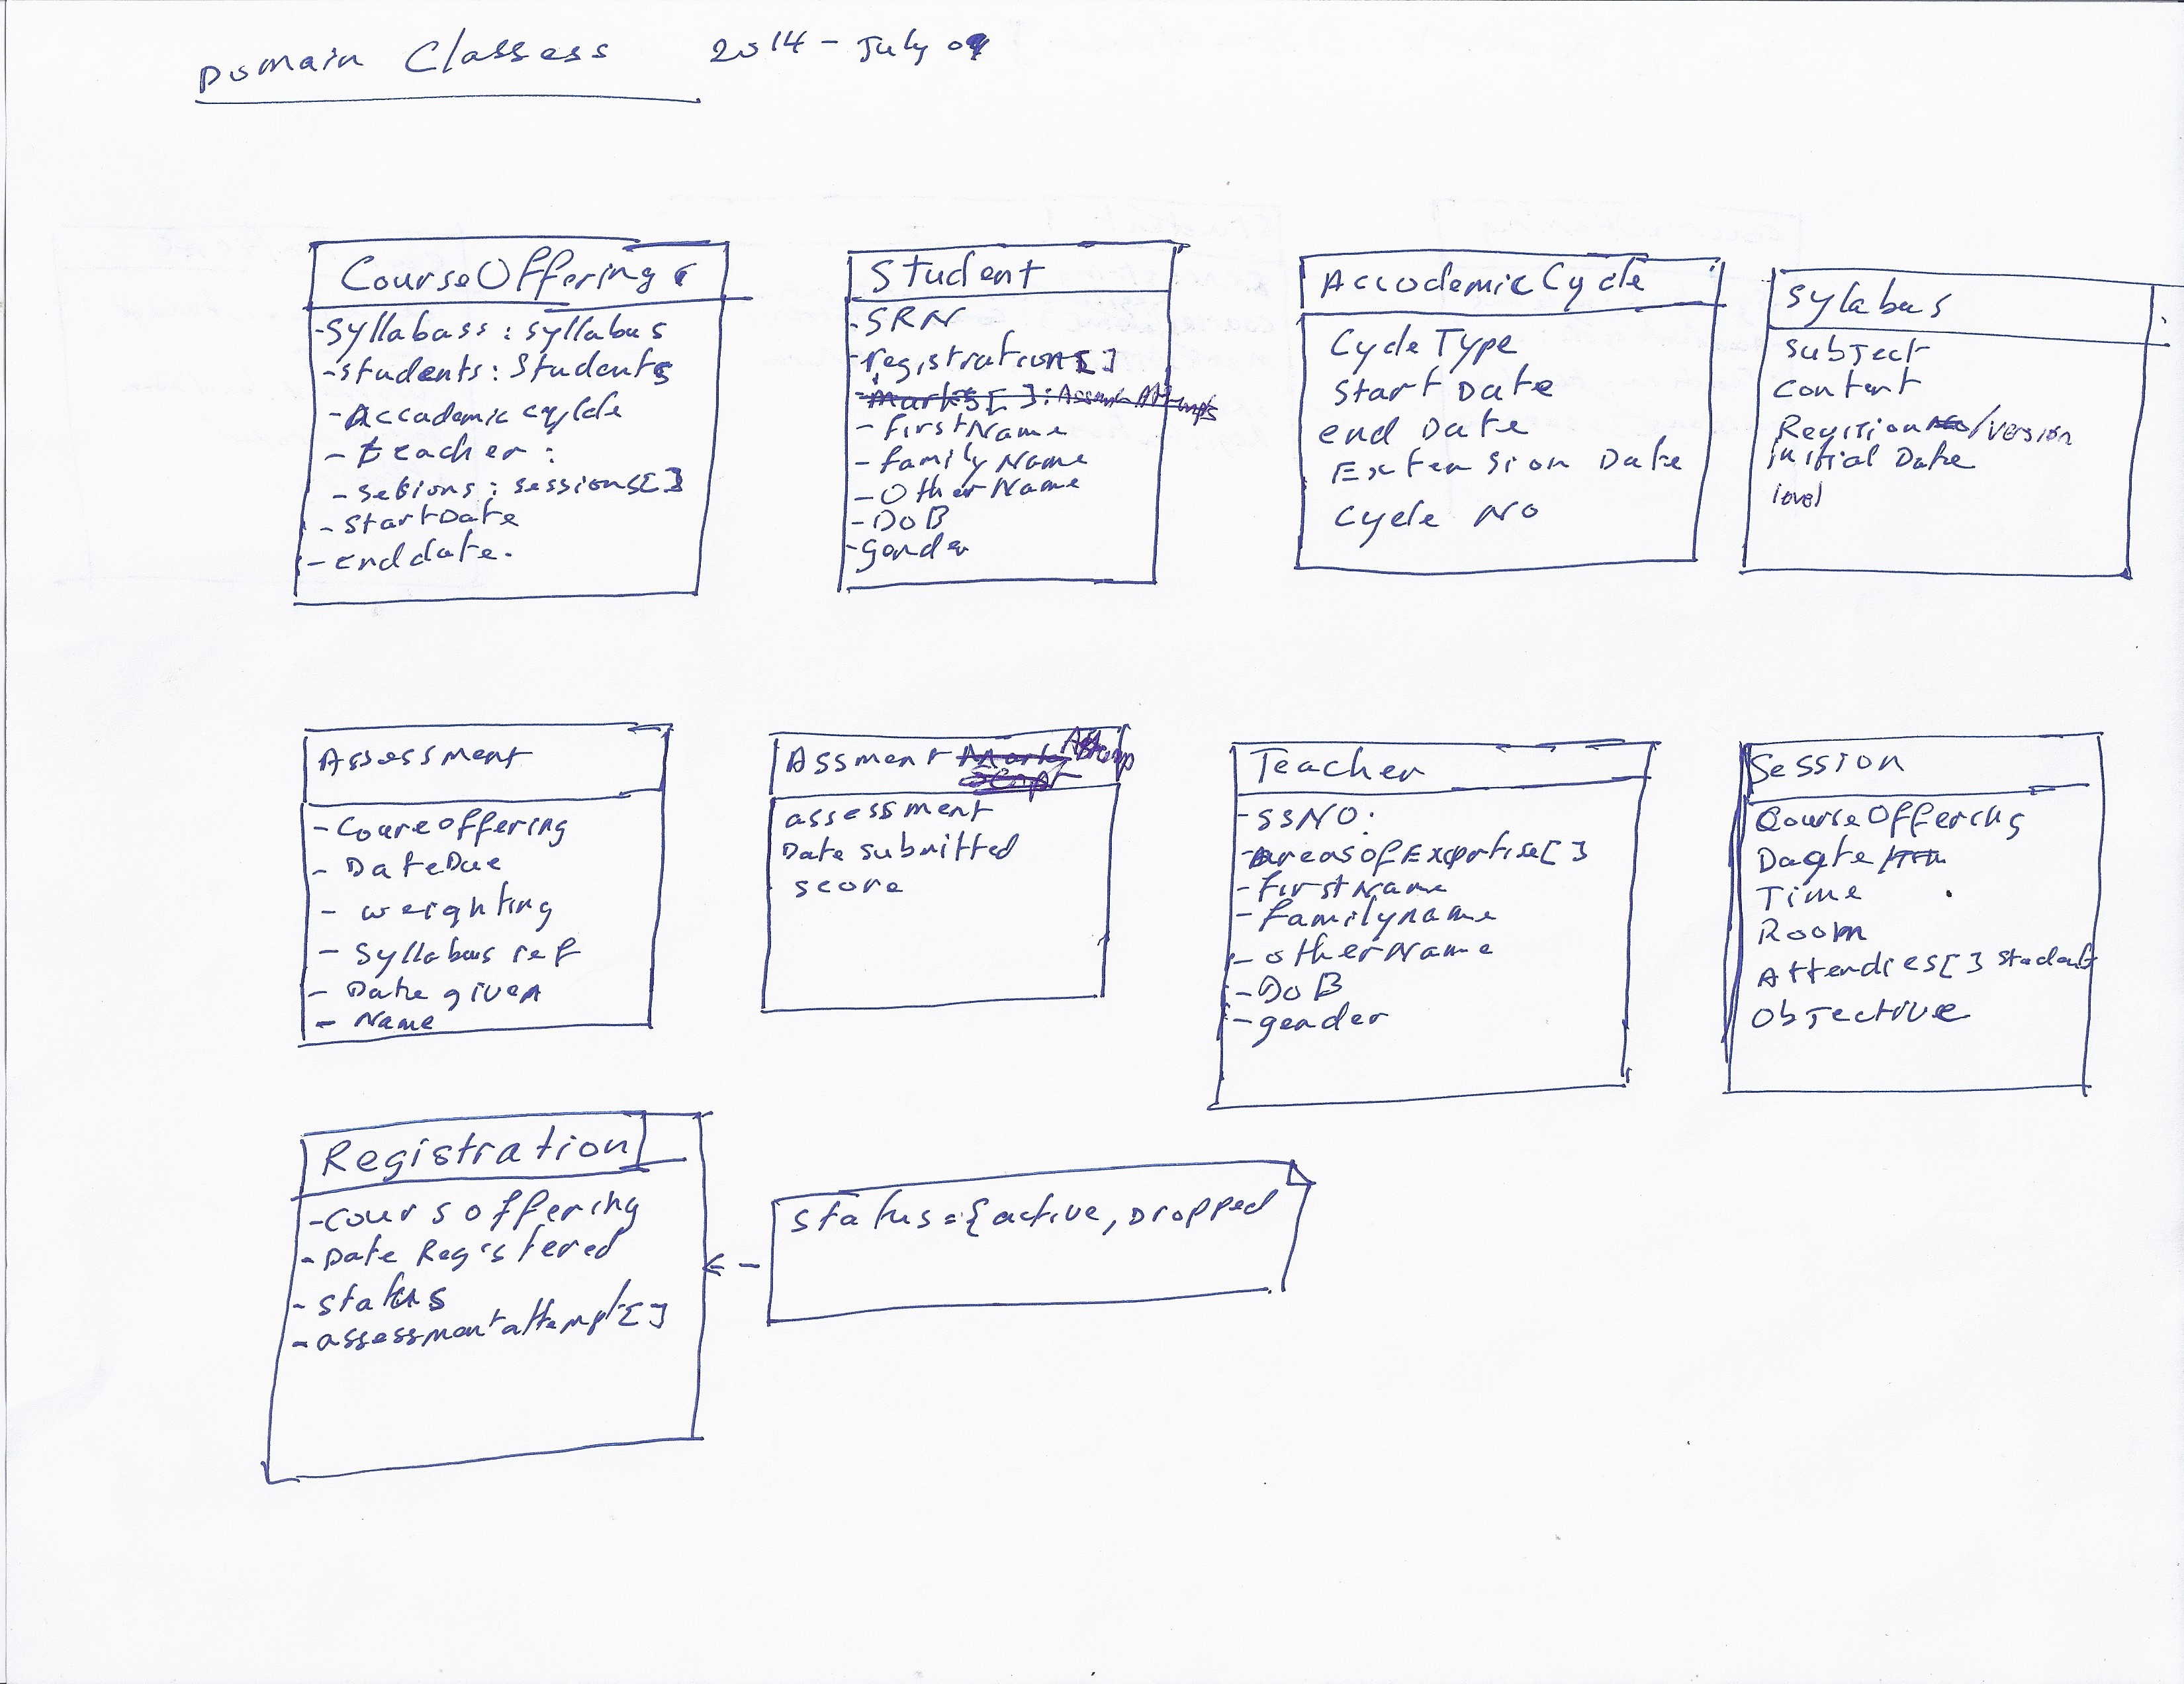 Domain Classess 2014 - July 09
CourseOffering
- Syllabass : syllabus
- students : Students
- Accademic cylcle
- teacher :
- sessions : sessions[]
- StartDate
- end date.
Student
- SRN
- registrations[]
- marks[] :
- firstName
- familyName
- OtherName
- DoB
- gender
AccademicCycle
Cycle Type
Start Date
end Date
Extension Date
Cycle NO
Sylabus
Subject
Content
Revision /version
initial Date
level
Assessment
- Coureoffering
- DateDue
- weighting
- Syllabus ref
- Date given
- Name
Assment Attemp
assessment
Date submitted
score
Teacher
- SSNO:
- areasofExpertise[]
- firstName
- familyname
- otherName
- DoB
- gender
Session
CourseOffering
Date
Time
Room
Attendies[] student
Objective
Registration
- Coursoffering
- Date Registered
- status
- assessmentattempt[]
status = {active, Dropped